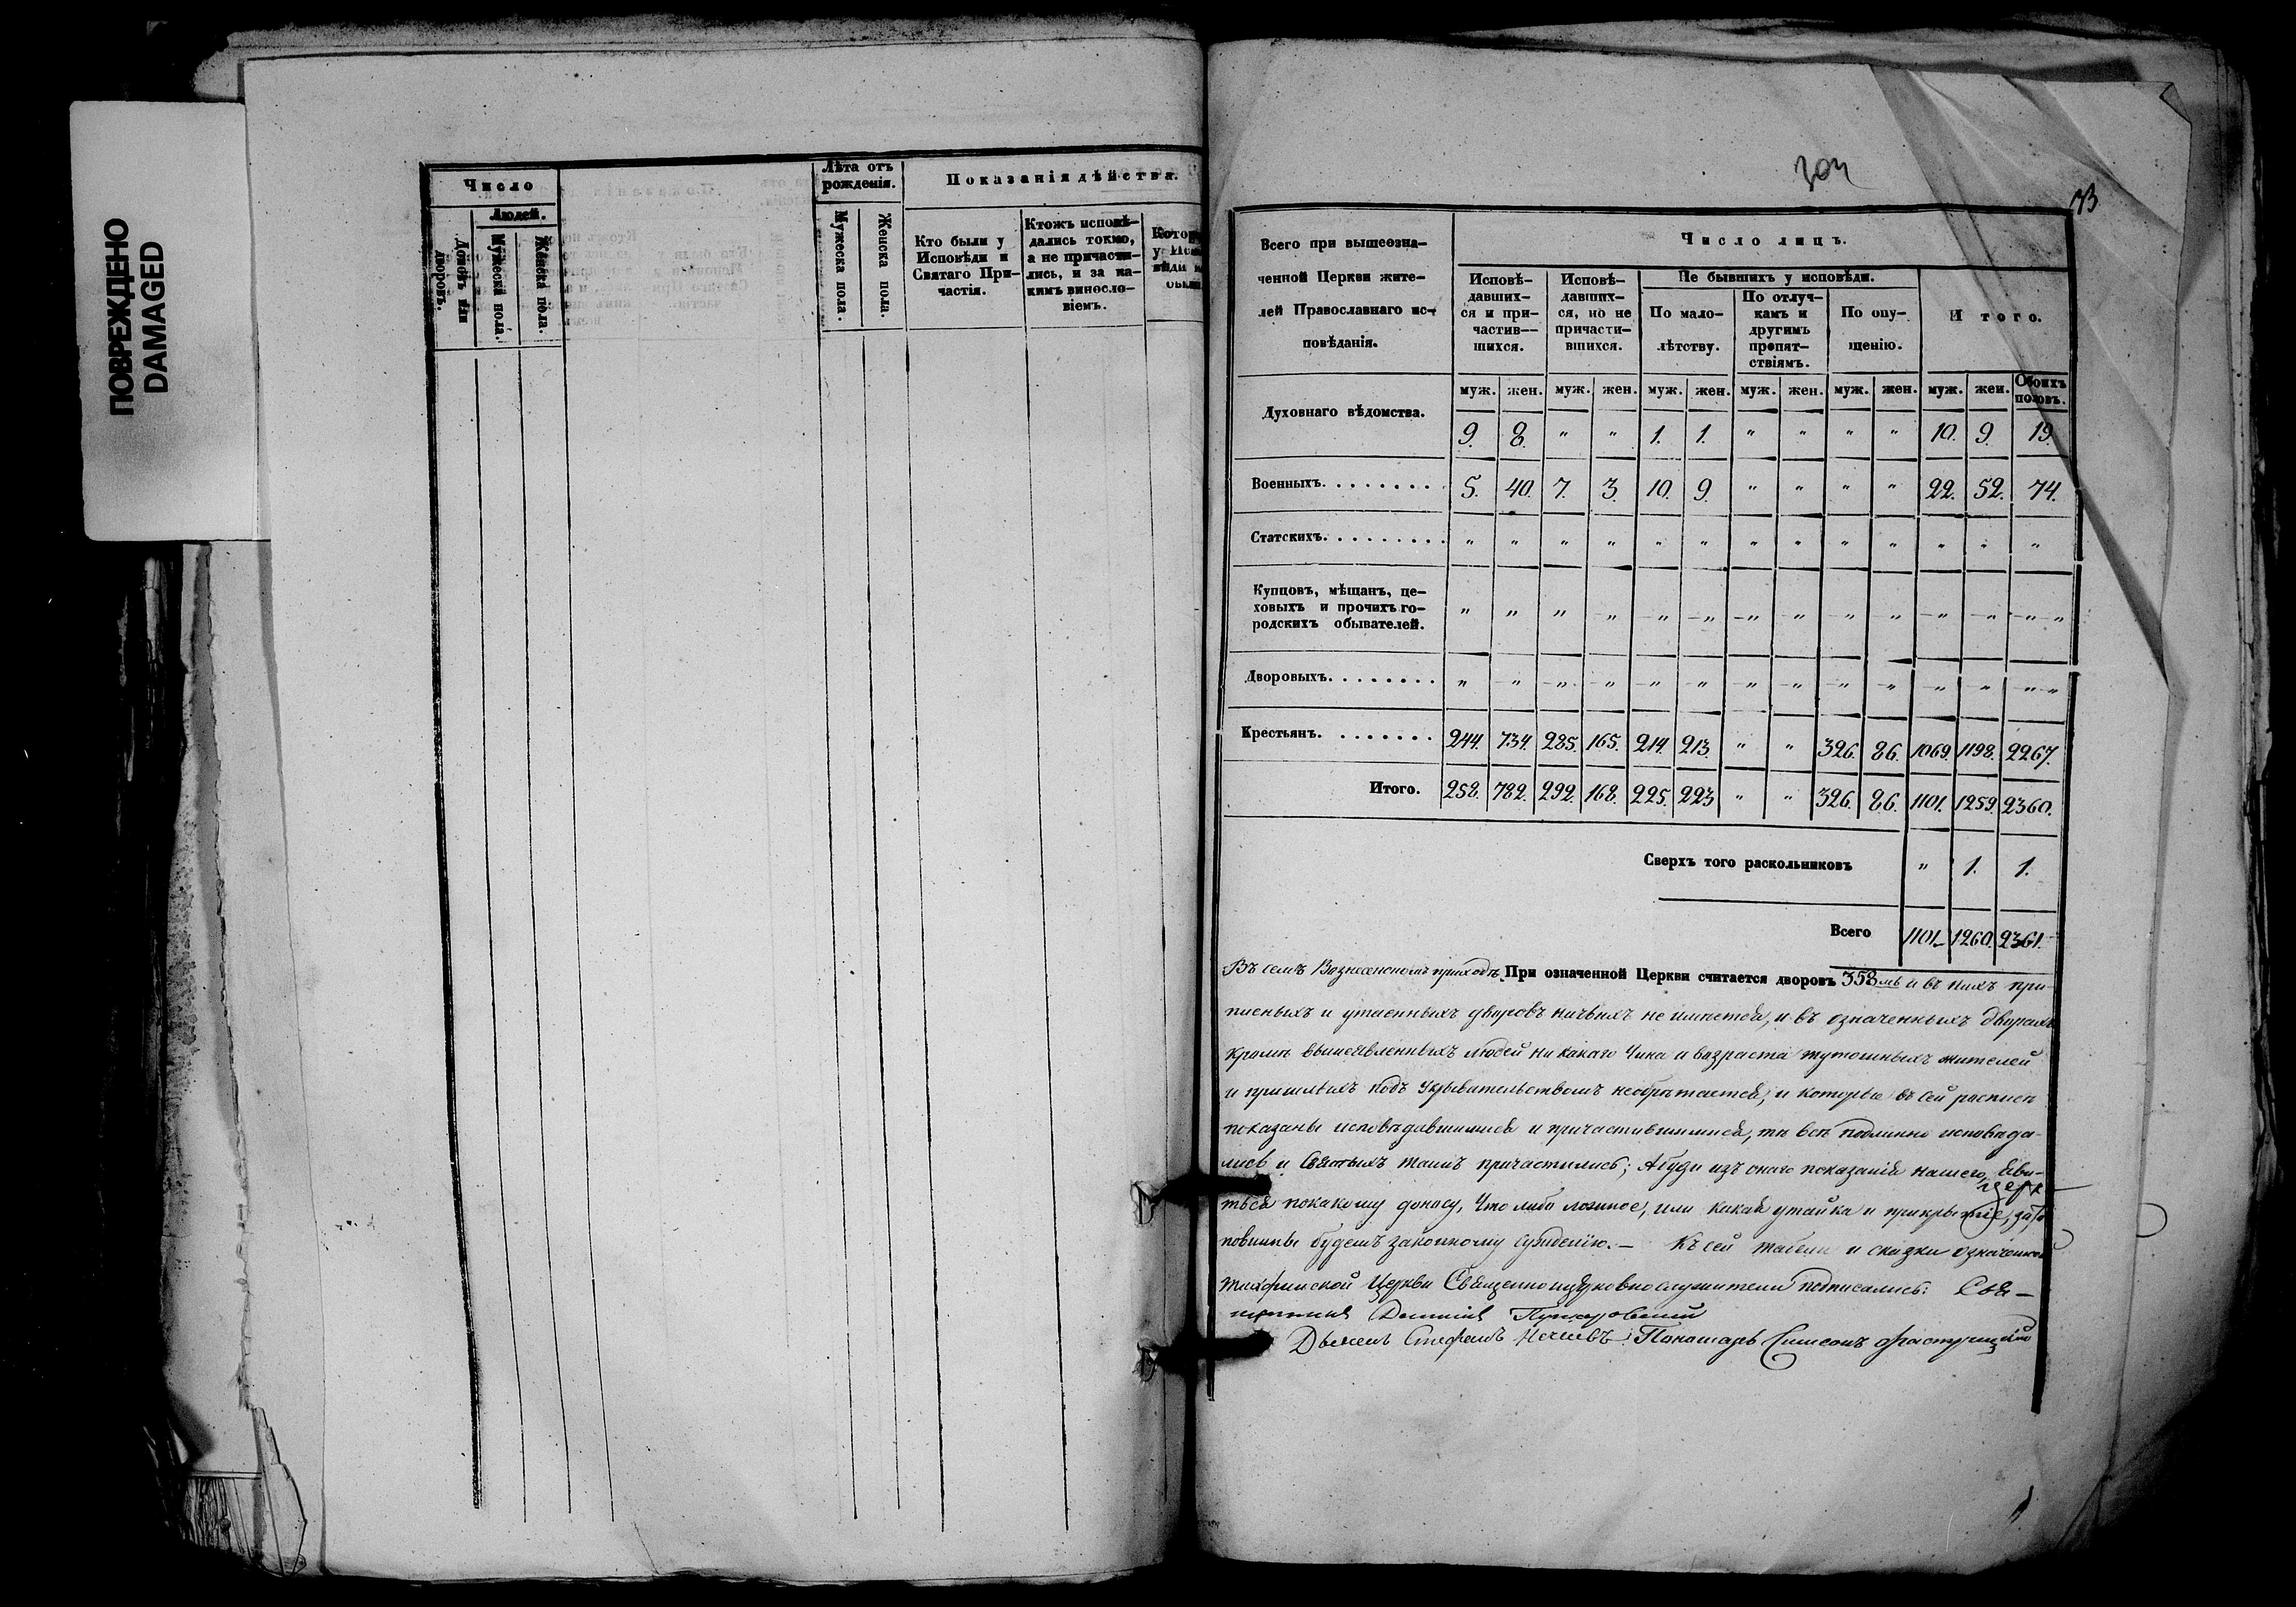 ПОВРЕЖДЕНО
DAMAGED
Число
Людей.
Домовъ или дворовъ.
Мужеска пола.
Женска пола.
Лѣта отъ
рожденія.
Мужеска пола.
Женска пола.
Показанія дѣйства.
Кто были у
Исповѣди и
Святаго При-
частія.
Ктожъ исповѣ-
дались токмо,
а не причасти-
лись, и за ка-
кимъ виносло-
віемъ.
304
Всего при вышеозна-
ченной Церкви жите-
лей Православнаго ис-
повѣданія.
Число лицъ.
Исповѣ-
давших-
ся и при-
частив-
шихся.
Исповѣ-
давших-
ся, но не
причасти-
вшихся.
Не бывшихъ у исповѣди.
По мало-
лѣтству.
По отлуч-
камъ и
другимъ
препят-
ствіямъ.
По опу-
щенію.
Итого.
муж. жен. муж. жен. муж. жен. муж. жен. муж. жен. муж. жен. Обоихъ половъ.
Духовнаго вѣдомства. 9. 8. " " 1. 1. " " " " 10. 9. 19.
Военныхъ. . . . . . . . 5. 40. 7. 3. 10. 9. " " " " 22. 52. 74.
Статскихъ. . . . . . . . " " " " " " " " " " " " "
Купцовъ, мѣщанъ, це-
ховыхъ и прочихъ го-
родскихъ обывателей. " " " " " " " " " " " " " "
Дворовыхъ. . . . . . . . " " " " " " " " " " " " " "
Крестьянъ. . . . . . . . 244. 734. 285. 165. 214. 213. " " 326. 86. 1069. 1198. 2267.
Итого. 258. 782. 292. 168. 225. 223 " " 326. 86. 1101. 1259. 2360.
Сверхъ того раскольниковъ " 1. 1.
Всего 1101. 1260. 2361.
Въ семъ Вознесенскомъ приходѣ При означенной Церкви считается дворовъ 358мь и въ нихъ при-
писныхъ и утаенныхъ дворовъ ничьихъ не имѣется, и въ означенныхъ дворахъ
кромѣ вышеявленныхъ людей никакого чина и возраста тутошныхъ жителей
и пришлыхъ подъ укрывательствомъ необрѣтается, и которые въ сей росписи
показаны исповѣдавшимися и причастившимися, тѣ всѣ подлинно исповѣда-
лись и Святыхъ таинъ причастились; Абуди изъ онаго показанія нашего, яви-
ться покакому доносу, что либо ложное, или какая утайка и прикрытіе, зато
повинны будемъ законному сужденію. — Къ сей табели и сказки означенной
Церкви Священноцерковнослужители подписались: Свя-
щенникъ
Дьяконъ Стефанъ Пономарь Симеонъ